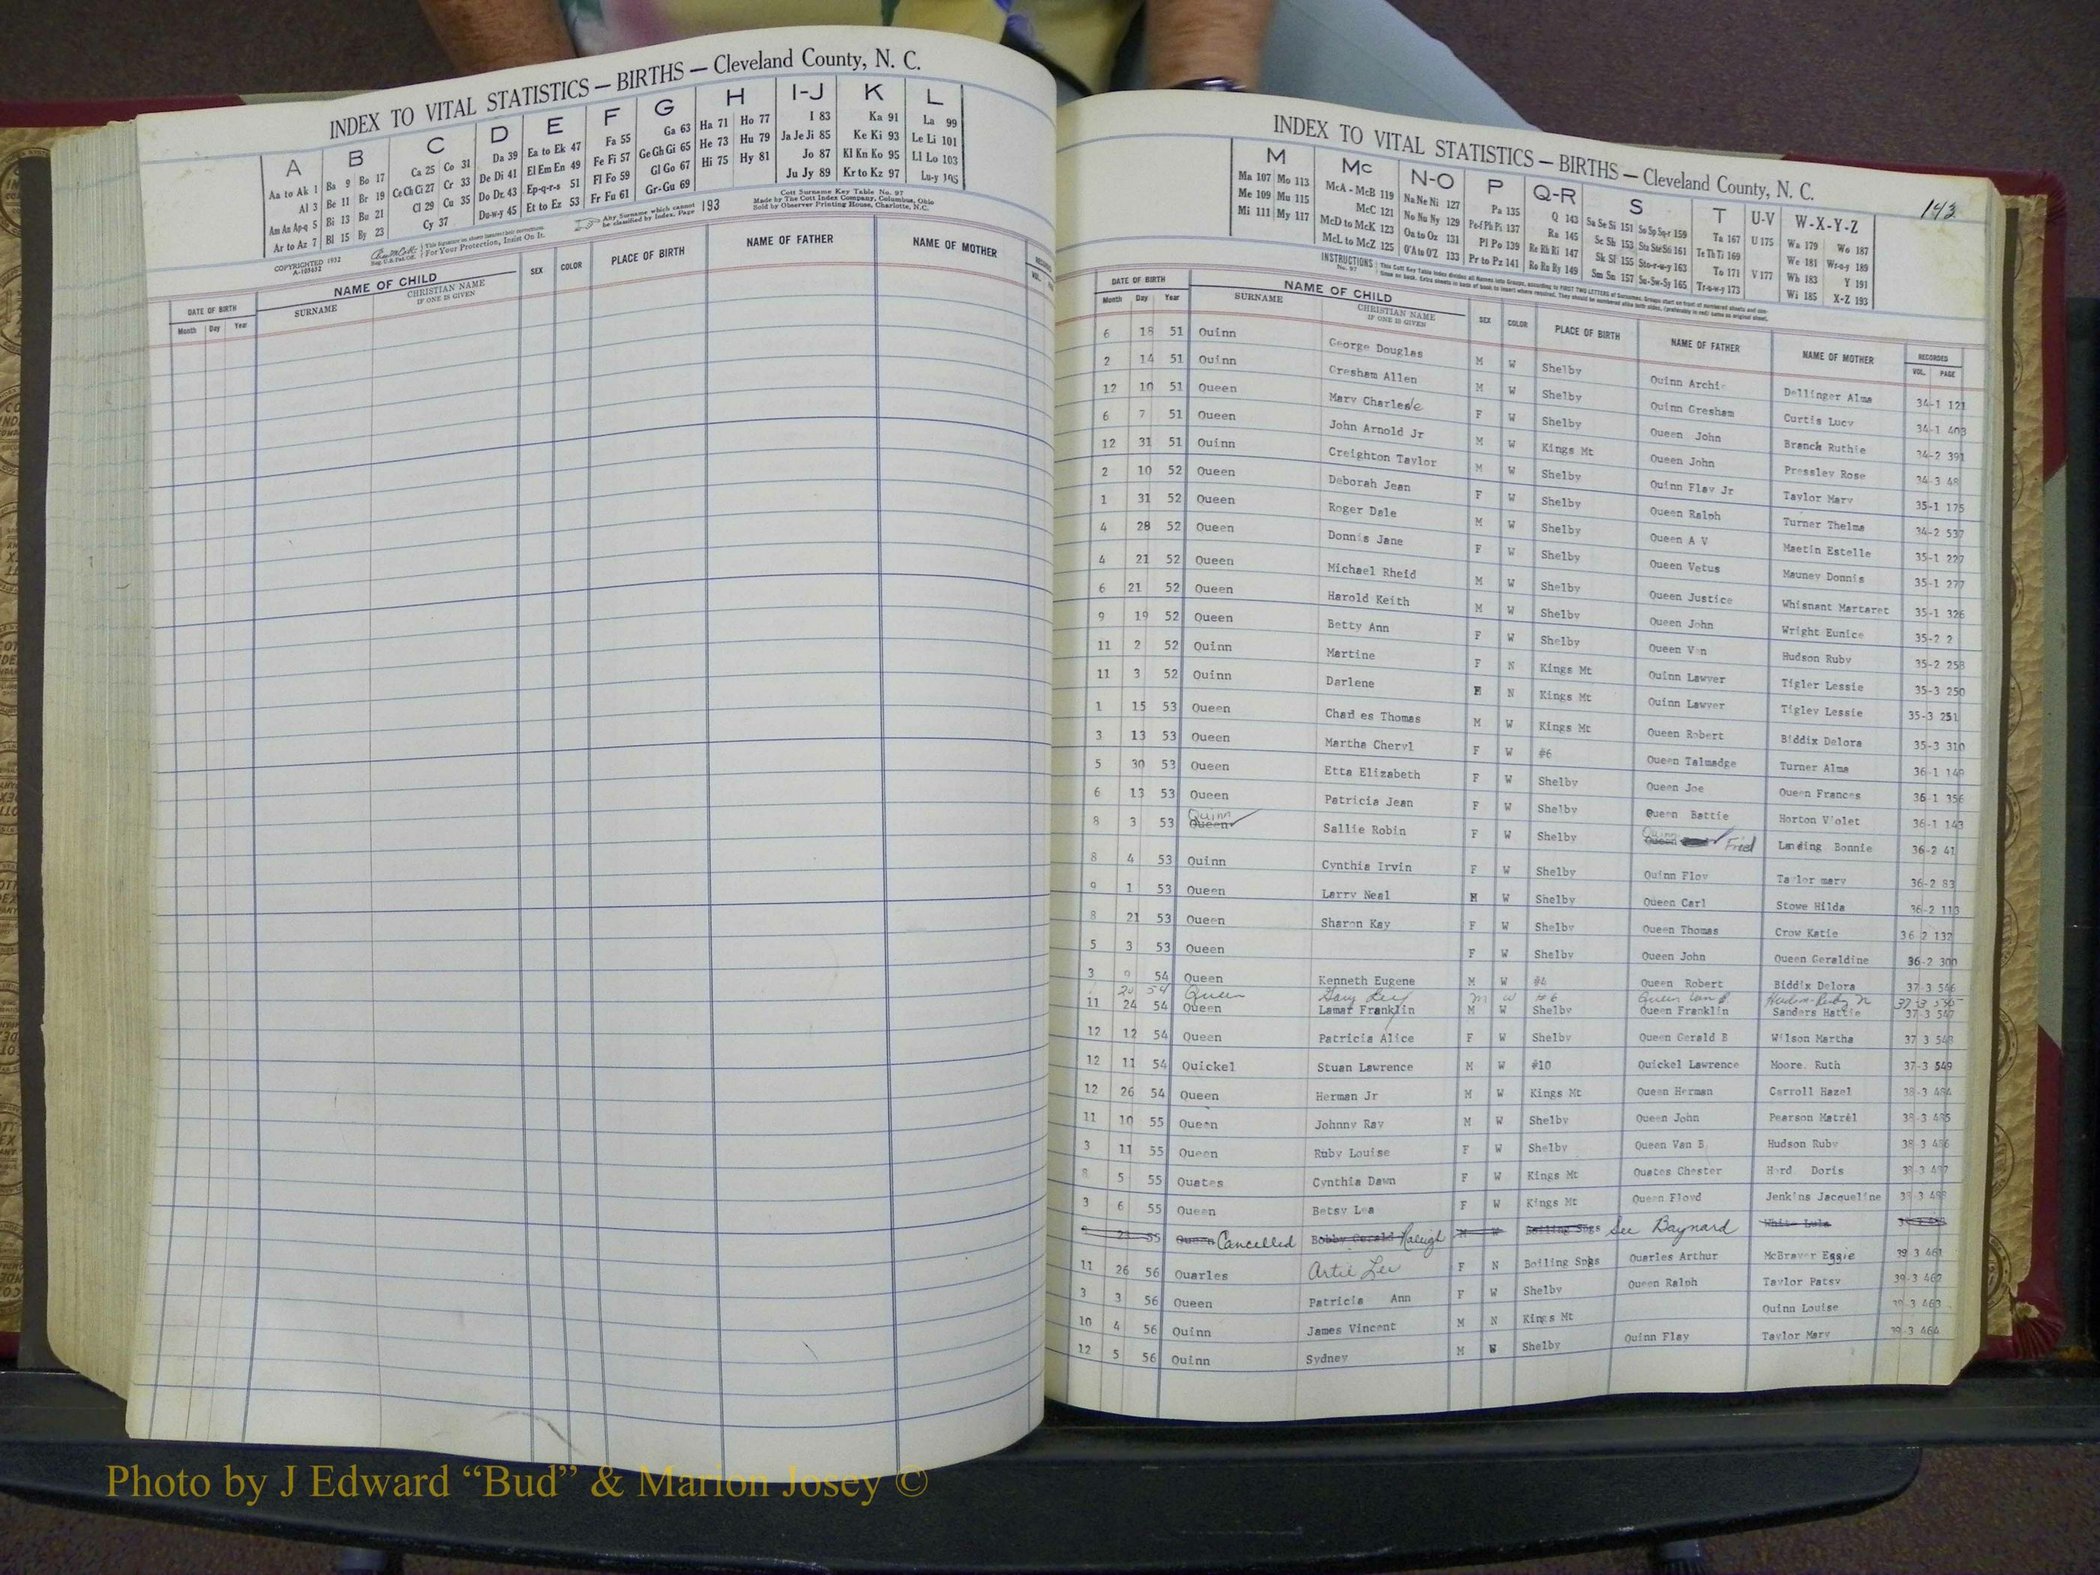 INDEX TO VITAL STATISTICS — BIRTHS — Cleveland County, N. C.
A B C D E F G H I-J K L
Aa to Ak 1 Ba 9 Bo 17 Ca 25 Co 31 Da 39 Ea to Ek 47 Fa 55 Ga 63 Ha 71 Ho 77 I 83 Ka 91 La 99
Al 3 Be 11 Br 19 Ce Ch Ci 27 Cr 33 De Di 41 El Em En 49 Fe Fi 57 Ge Gh Gi 65 He 73 Hu 79 Ja Je Ji 85 Ke Ki 93 Le Li 101
Am An Ap-q 5 Bi 13 Bu 21 Cl 29 Cu 35 Do Dr 43 Ep-q-r-s 51 Fl Fo 59 Gl Go 67 Hi 75 Hy 81 Jo 87 Kl Kn Ko 95 Ll Lo 103
Ar to Az 7 Bl 15 By 23 Cy 37 Du-w-y 45 Et to Ez 53 Fr Fu 61 Gr-Gu 69 Ju Jy 89 Kr to Kz 97 Lu-y 105
COPYRIGHTED 1932
A-103652
For Your Protection, Insist On It.
Any Surname which cannot be classified by Index, Page 193
Cott Surname Key Table No. 97
Made by The Cott Index Company, Columbus, Ohio
Sold by Observer Printing House, Charlotte, N.C.
DATE OF BIRTH NAME OF CHILD SEX COLOR PLACE OF BIRTH NAME OF FATHER NAME OF MOTHER
Month Day Year SURNAME CHRISTIAN NAME IF ONE IS GIVEN
INDEX TO VITAL STATISTICS — BIRTHS — Cleveland County, N. C.
143
M Mc N-O P Q-R S T U-V W-X-Y-Z
Ma 107 Mo 113 McA - McB 119 Na Ne Ni 127 Pa 135 Q 143 Sa Se Si 151 So Sp Sq-r 159 Ta 167 U 175 Wa 179 Wo 187
Me 109 Mu 115 McC 121 No Nu Ny 129 Pe-f Ph Pi 137 Ra 145 Sc Sh 153 Sta Ste Sti 161 Te Th Ti 169 We 181 Wr-o-y 189
Mi 111 My 117 McD to McK 123 Oa to Oz 131 Pl Po 139 Re Rh Ri 147 Sk Sl 155 Sto-r-u-y 163 To 171 V 177 Wh 183 Y 191
McL to McZ 125 O'A to O'Z 133 Pr to Pz 141 Ro Ru Ry 149 Sm Sn 157 Su-Sw-Sy 165 Tr-u-w-y 173 Wi 185 X-Z 193
INSTRUCTIONS No. 97
DATE OF BIRTH NAME OF CHILD SEX COLOR PLACE OF BIRTH NAME OF FATHER NAME OF MOTHER RECORDED
Month Day Year SURNAME CHRISTIAN NAME IF ONE IS GIVEN VOL. PAGE
6 18 51 Quinn George Douglas M W Shelby Quinn Archie Dellinger Alma 34-1 121
2 14 51 Quinn Gresham Allen M W Shelby Quinn Gresham Curtis Lucy 34-1 403
12 10 51 Queen Mary Charlesie F W Shelby Queen John Branch Ruthie 34-2 391
6 7 51 Queen John Arnold Jr M W Kings Mt Queen John Pressley Rose 34-3 48
12 31 51 Quinn Creighton Taylor M W Shelby Quinn Flay Jr Taylor Mary 35-1 175
2 10 52 Queen Deborah Jean F W Shelby Queen Ralph Turner Thelma 34-2 537
1 31 52 Queen Roger Dale M W Shelby Queen A V Maetin Estelle 35-1 227
4 28 52 Queen Donnis Jane F W Shelby Queen Vetus Mauney Donnis 35-1 277
4 21 52 Queen Michael Rheid M W Shelby Queen Justice Whisnant Martaret 35-1 326
6 21 52 Queen Harold Keith M W Shelby Queen John Wright Eunice 35-2 2
9 19 52 Queen Betty Ann F W Shelby Queen Van Hudson Ruby 35-2 258
11 2 52 Quinn Martine F N Kings Mt Quinn Lawyer Tigler Lessie 35-3 250
11 3 52 Quinn Darlene F N Kings Mt Quinn Lawyer Tigley Lessie 35-3 251
1 15 53 Queen Charles Thomas M W Kings Mt Queen Robert Biddix Delora 35-3 310
3 13 53 Queen Martha Cheryl F W #6 Queen Talmadge Turner Alma 36-1 149
5 30 53 Queen Etta Elizabeth F W Shelby Queen Joe Queen Frances 36-1 356
6 13 53 Queen Patricia Jean F W Shelby Queen Battie Horton Violet 36-1 143
8 3 53 Queen Quinn Sallie Robin F W Shelby Queen Quinn Fred Landing Bonnie 36-2 41
8 4 53 Quinn Cynthia Irvin F W Shelby Quinn Floy Taylor mary 36-2 83
9 1 53 Queen Larry Neal M W Shelby Queen Carl Stowe Hilda 36-2 113
8 21 53 Queen Sharon Kay F W Shelby Queen Thomas Crow Katie 36 2 132
5 3 53 Queen F W Shelby Queen John Queen Geraldine 36-2 300
3 9 54 Queen Kenneth Eugene M W #4 Queen Robert Biddix Delora 37-3 546
20 54 Queen Gary Lee M W #6 Queen Van B Hudson Ruby N 37-3
11 24 54 Queen Lamar Franklin M W Shelby Queen Franklin Sanders Hattie 37-3 547
12 12 54 Queen Patricia Alice F W Shelby Queen Gerald B Wilson Martha 37 3 548
12 11 54 Quickel Stuan Lawrence M W #10 Quickel Lawrence Moore. Ruth 37-3 549
12 26 54 Queen Herman Jr M W Kings Mt Queen Herman Carroll Hazel 38-3 484
11 10 55 Queen Johnny Ray M W Shelby Queen John Pearson Matrel 38-3 485
3 11 55 Queen Ruby Louise F W Shelby Queen Van B. Hudson Ruby 38-3 486
8 5 55 Quates Cynthia Dawn F W Kings Mt Quates Chester Hord Doris 38 3 487
3 6 55 Queen Betsy Lea F W Kings Mt Queen Floyd Jenkins Jacqueline 38 3 488
21 55 Queen Cancelled Bobby Gerald Raleigh M W Boiling Spgs See Baynard White Lula
11 26 56 Quarles Artie Lee F N Boiling Spgs Quarles Arthur McBrayer Eggie 39 3 461
3 3 56 Queen Patricia Ann F W Shelby Queen Ralph Taylor Patsy 39-3 462
10 4 56 Quinn James Vincent M N Kings Mt Quinn Louise 39-3 463
12 5 56 Quinn Sydney M W Shelby Quinn Flay Taylor Mary 39-3 464
Photo by J Edward “Bud” & Marion Josey ©